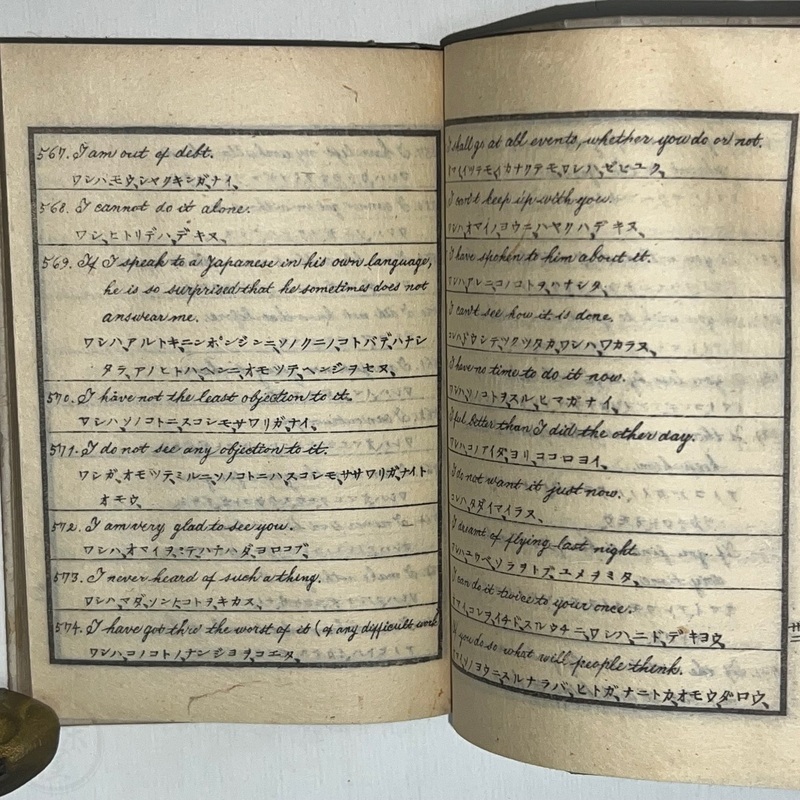 567. I am out of debt.
ワシハ、モウ、シヤクキンガ、ナイ、
568. I cannot do it alone.
ワシ、ヒトリデハ、デキヌ、
569. If I speak to a Japanese in his own language,
he is so surprised that he sometimes does not
answear me.
ワシハ、アルトキニ、ニホ゜ンジンニ、ソノクニノ、コトバデ、ハナシ
タラ、アノヒトハ、ヘンニ、オモツテ、ヘンジヲ、セヌ、
570. I have not the least objection to it.
ワシハ、ソノコトニ、スコシモ、サワリガ、ナイ、
571. I do not see any objection to it.
ワシガ、オモツテミルニ、ソノコトニハ、スコシモ、ササワリガ、ナイト
オモウ、
572. I am very glad to see you.
ワシハ、オマイヲ、ミテ、ハナハダ、ヨロコブ、
573. I never heard of such a thing.
ワシハ、マダ、ソンナコトヲ、キカヌ、
574. I have got thro' the worst of it (of any difficult work
ワシハ、コノコトノ、ナンジヨヲ、コエタ、
I shall go at all events, whether you do or not.
カナクテモ、ワシハ、ゼヒユク、
I can't keep up with you.
ワシハ、オマイノ、ヨウニ、ハヤクハ、デキヌ、
I have spoken to him about it.
ワシハ、アレニ、コノコトヲ、ハナシタ、
I can't see how it is done.
ワシハ、ドウシテ、ツクツタカ、ワシハ、ワカラヌ、
I have no time to do it now.
ワシハ、ソノコトヲ、スル、ヒマガ、ナイ、
I feel better than I did the other day.
ワシハ、コノアイダ、ヨリ、ココロヨイ、
I do not want it just now.
ワシハ、タダイマ、イラヌ、
I dreamt of flying last night.
ワシハ、ユウベ、ソラヲ、トブ、ユメヲ、ミタ、
I can do it twice to your once.
オマイ、コレヲ、イチド、スルウチニ、ワシハ、ニド、デキヨウ、
If you do so what will people think.
オマイ、ソノヨウニ、スルナラバ、ヒトガ、ナニトカ、オモウダロウ、